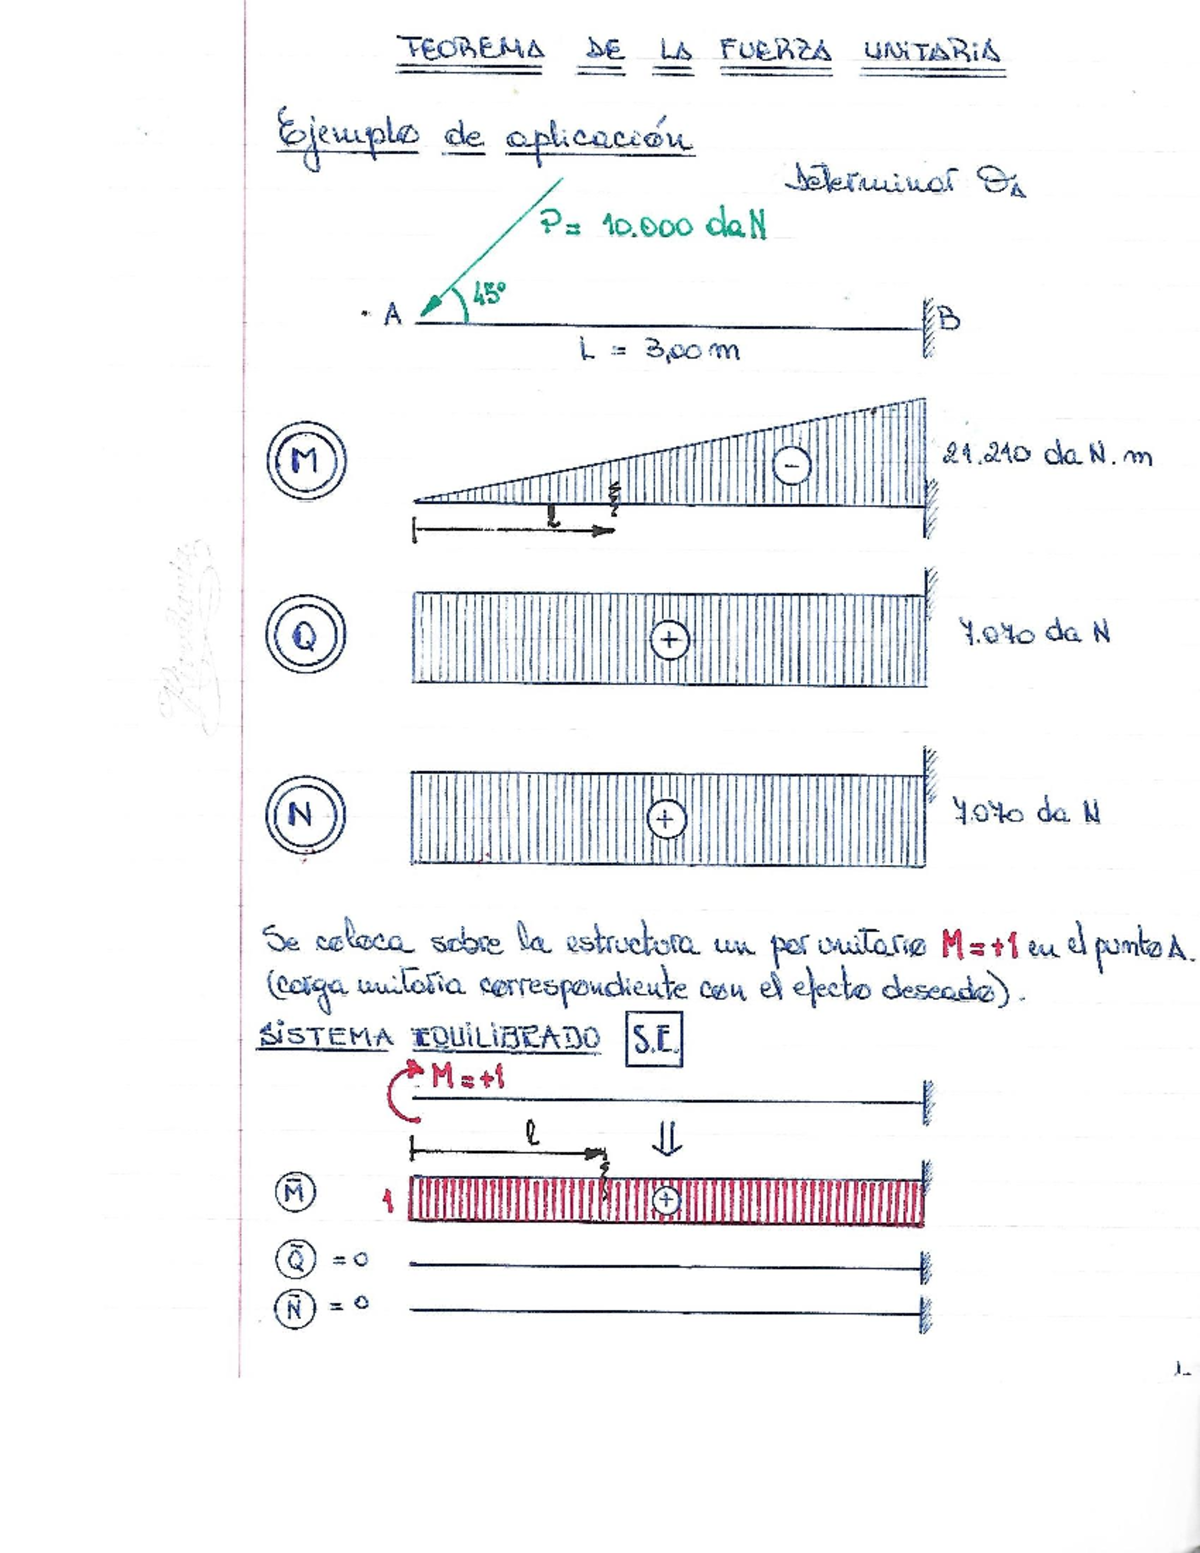 TEOREMA DE LA FUERZA UNITARIA
Ejemplo de aplicación
Determinar θA
P= 10.000 daN
45º
A
B
L = 3,00 m
M
-
21.210 daN.m
l
Q
+
7.070 daN
N
+
7.070 daN
Se coloca sobre la estructura un par unitario M=+1 en el punto A.
(carga unitaria correspondiente con el efecto deseado).
SISTEMA EQUILIBRADO S.E.
M=+1
l
M̄
1
+
Q̄ = 0
N̄ = 0
1-